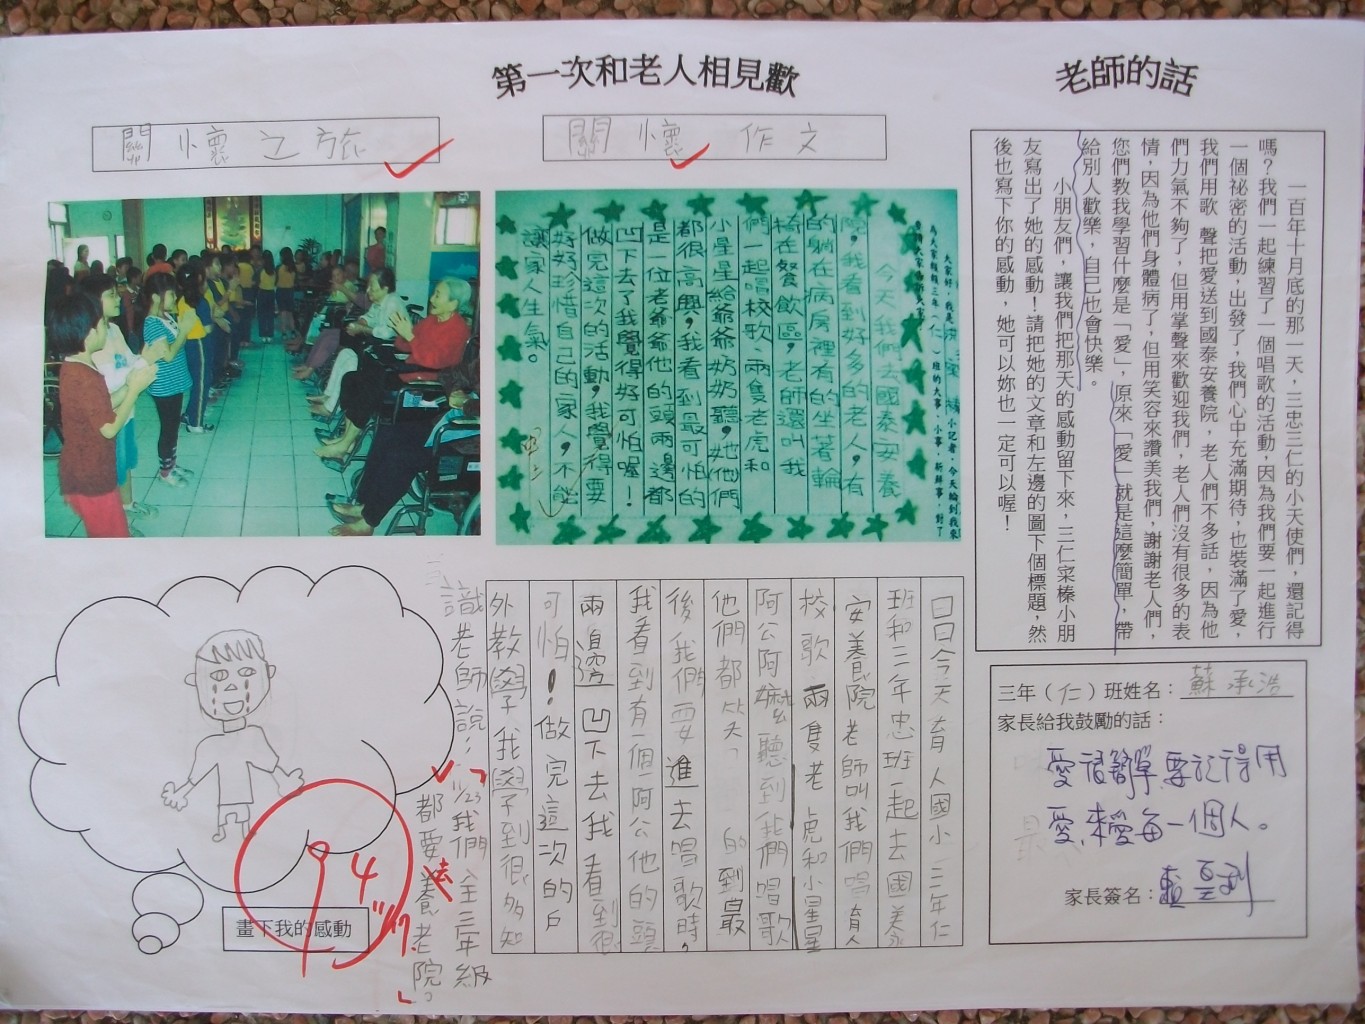 老師的話
一百年十月底的那一天，三忠三仁的小天使們，還記得
嗎？我們一起練習了一個唱歌的活動，因為我們要一起進行
一個祕密的活動，出發了，我們心中充滿期待，也裝滿了愛，
我們用歌聲把愛送到國泰安養院，老人們不多話，因為他
們力氣不夠了，但用掌聲來歡迎我們，老人們沒有很多的表
情，因為他們身體病了，但用笑容來讚美我們，謝謝老人們，
您們教我學習什麼是「愛」，原來「愛」就是這麼簡單，帶
給別人歡樂，自己也會快樂。
小朋友們，讓我們把那天的感動留下來，三仁寀榛小朋
友寫出了她的感動！請把她的文章和左邊的圖下個標題，然
後也寫下你的感動，她可以妳也一定可以喔！
三年（仁）班姓名：蘇承浩
家長給我鼓勵的話：
愛很簡單要記得用
愛來愛每一個人。
家長簽名：
第一次和老人相見歡
關懷作文
關懷之旅
大家好，我是小記者，今天輪到我來
為大家報報三年（仁）班的大事、小事、新鮮事，對了
今天我們去國泰安養
院，我看到好多的老人，有
的躺在病房裡有的坐著輪
椅在餐飲區，老師還叫我
們一起唱校歌、兩隻老虎和
小星星給爺爺奶奶聽，她們
都很高興，我看到最可怕的
是一位老爺爺他的頭兩邊都
凹下去了我覺得好可怕喔！
做完這次的活動，我覺得要
好好珍惜自己的家人，不能
讓家人生氣。
今天育人國小三年仁
班和三年忠班一起去國泰
安養院老師叫我們唱育人
校歌兩隻老虎和小星星
阿公阿嬤聽到我們唱歌
他們都笑 的到最
後我們要進去唱歌時，
我看到有一個阿公他的頭
兩邊凹下去我看到很
可怕！做完這次的戶
外教學我學到很多知
識老師說：11/23我們全三年級
都要去養老院。
94
畫下我的感動